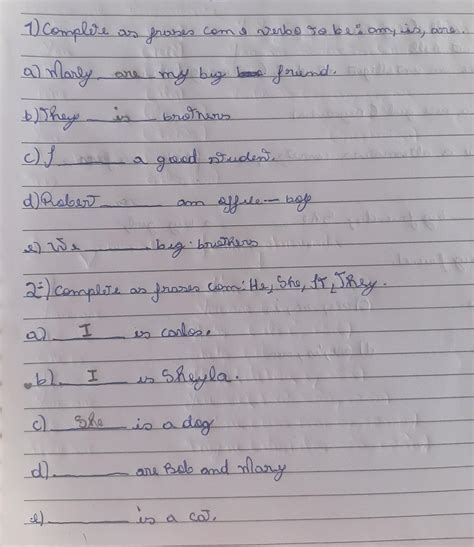 1) Complete as frases com o verbo to be: am, is, are...
a) Marly are my big friend.
b) They is brothers
c) I a good student.
d) Robert am office-boy
e) We big brothers
2ª) Complete as frases com: He, She, It, They.
a) I is Carlos.
b) I is Sheyla.
c) She is a dog
d) are Bob and Mary
e) is a cat.